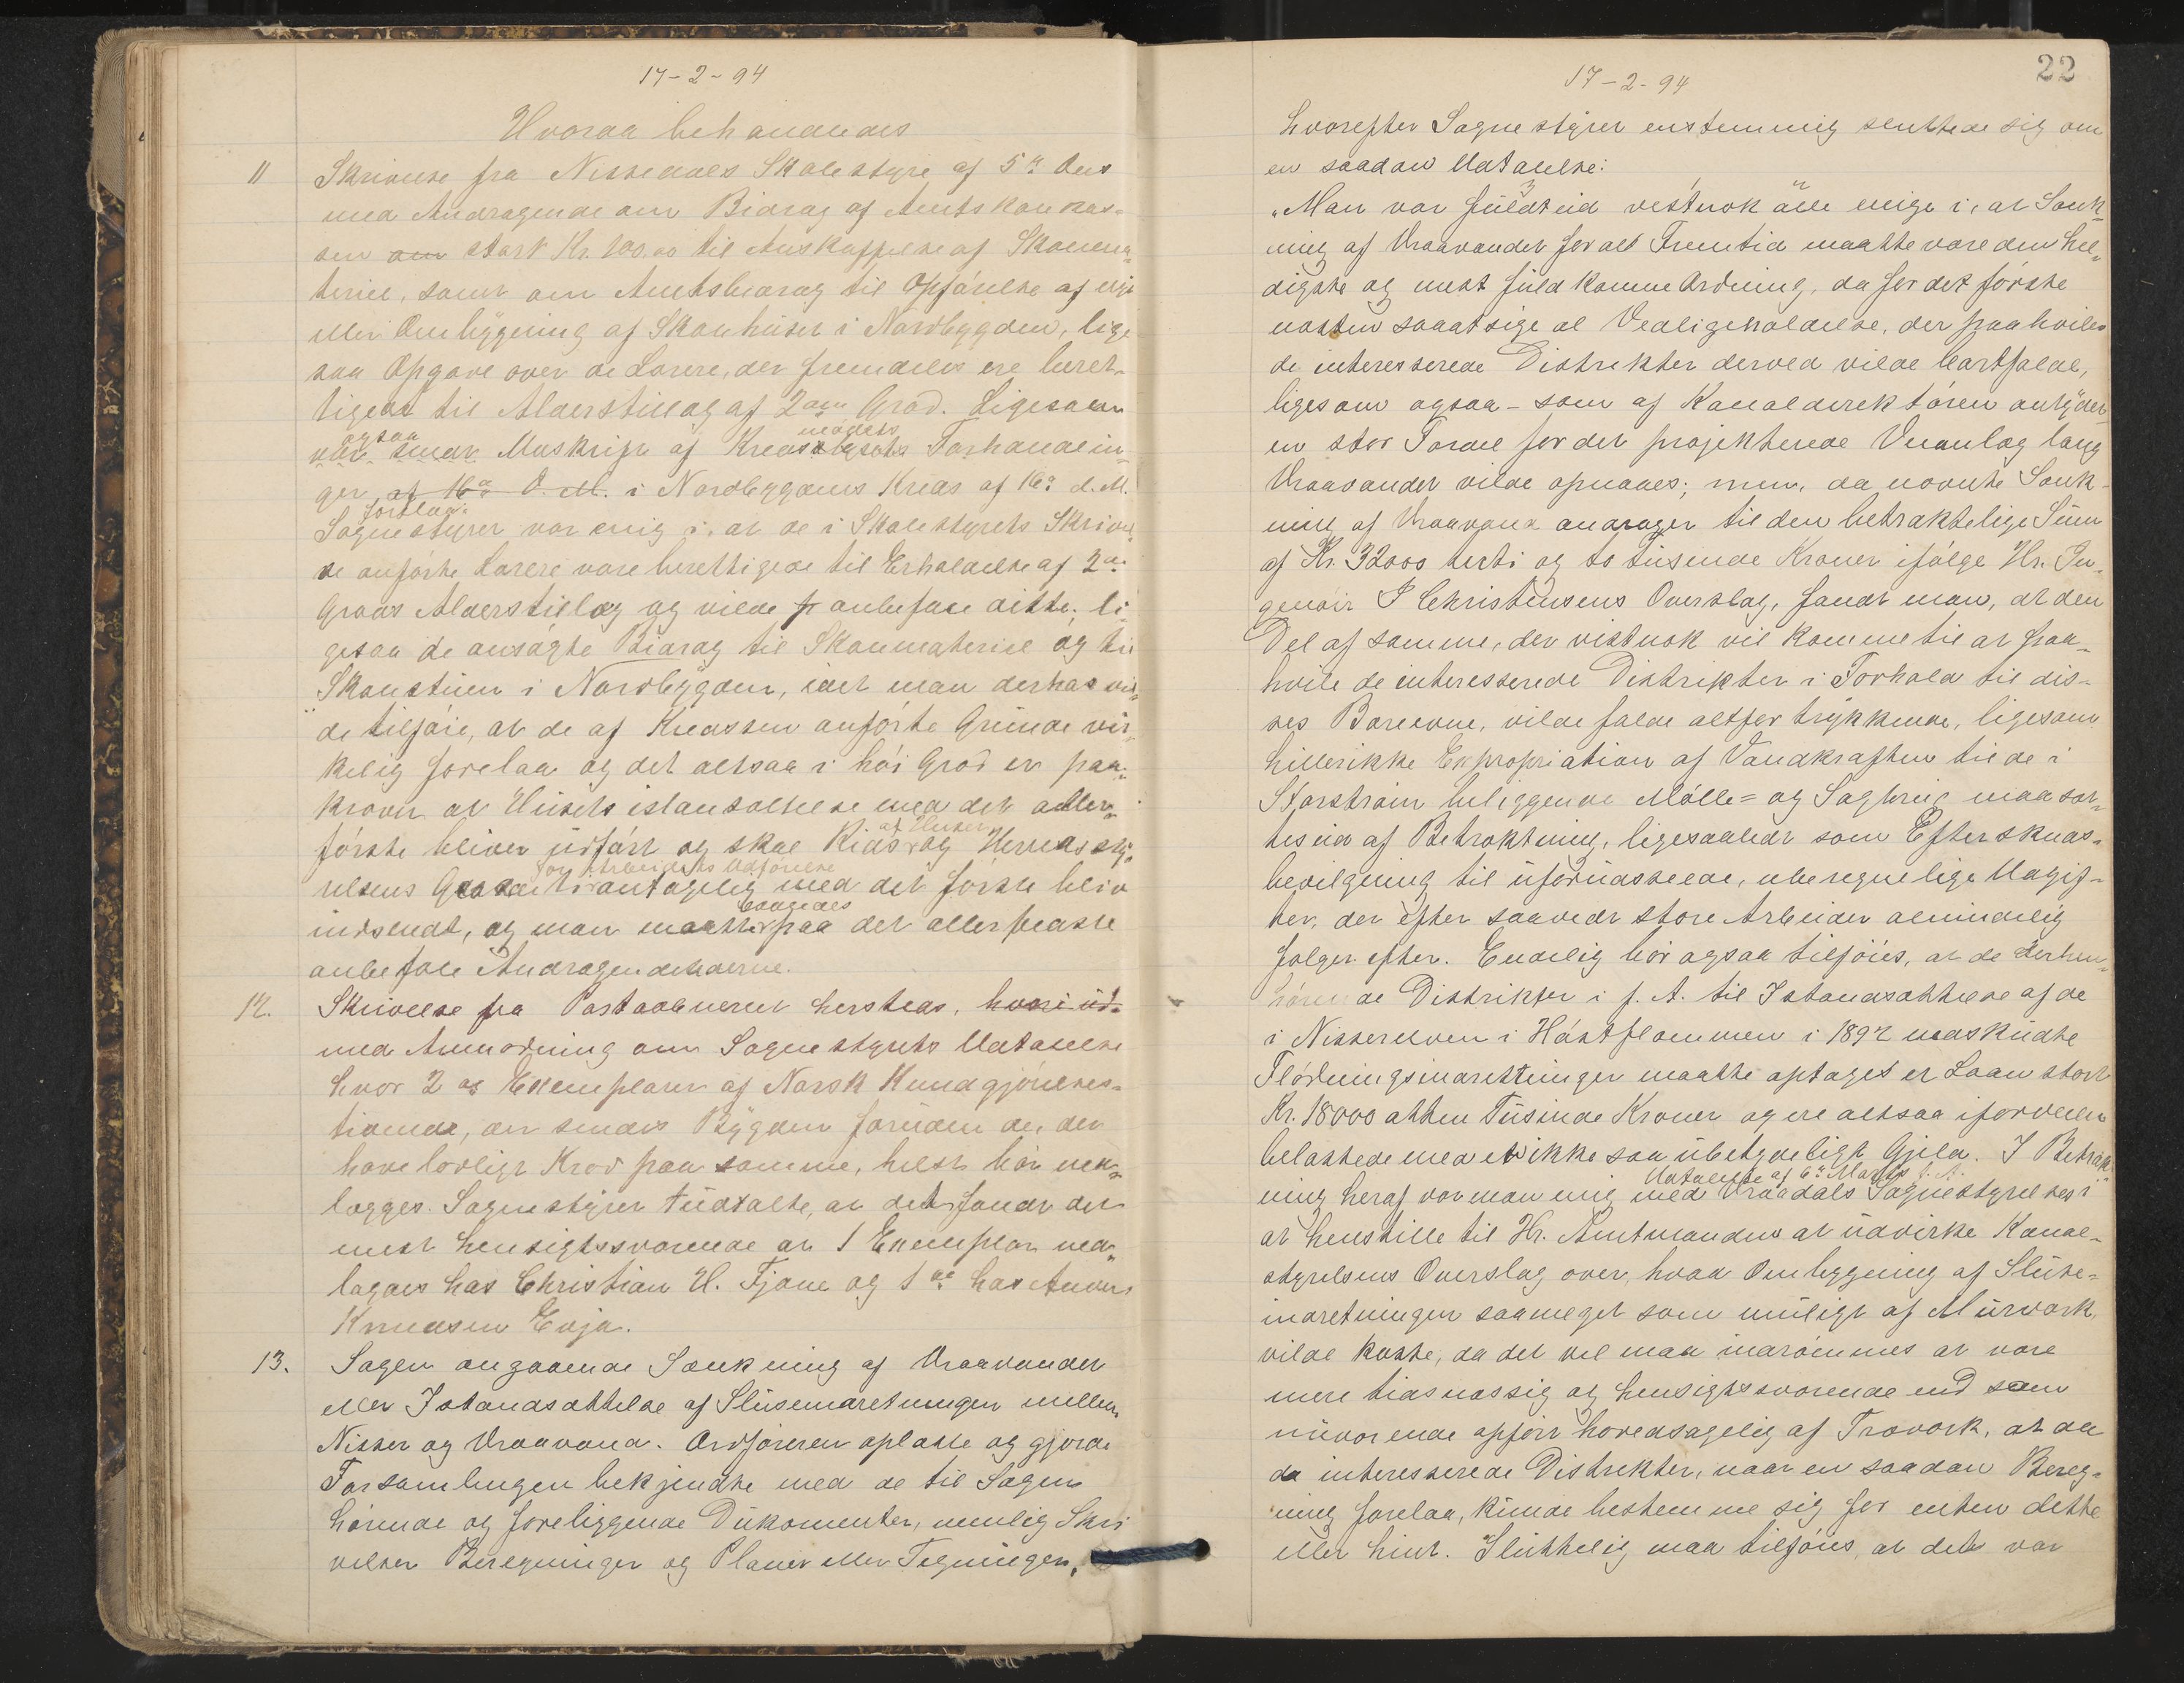 17-2-94
Hvoraa behandledes
11 Skrivelse fra Nissedals Skolestyre af 5te dens
med Andragende om Bidrag af Amtsskolekas-
sen om stort Kr. 100.00 til Anskaffelse af Skolema-
teriel, samt om Amtsbidrag til Opførelse af nyt
eller Ombygging af Skolehuset i Nordbygden, lige
saa Opgave over de Lærere, der fremdeles ere beret-
tigede til Alderstillæg af 2den Grad. Ligesaa
var ogsaa Afskrift af Kredsmødets Forhandlin-
ger af 16de d. M. i Nordbygdens Kreds af 16de d. M.
forelag.
Sognestyret var enig i, at de i Skolestyrets Skrivel
se anførte Lærere vare berettigede til Erholdelse af 2den
Grads Alderstillæg og vilde anbefale dette, li-
gesaa de ansøgte Bidrag til Skolemateriel og til
Skolestuen i Nordbygden, idet man derhos vil-
de tilføie, at de af Kredsen anførte Grunde vir-
kelig forelaa og det altsaa i høi Grad er paa-
krævet at Husets istandsættelse med det aller-
første bliver udført og skal Rids af Huset og Herredssty-
relsens Garanti for Arbeidets Udførelse antagelig med det første bliv
indsendt, og man maatte saaledes paa det allerbedste
anbefale Andragenderne.
12. Skrivelse fra Postaabneren hersteds, hvori ud-
med Anmodning om Sognestyrets Udtalelse
hvor 2 Exemplarer af Norsk Kundgjørelses-
tidende, der sendes Bygden foruden de, der
have lovligt Krav paa samme, helst bør ned-
lægges. Sognestyret udtalte, at det fandt det
mest hensigtssvarende at 1 Exemplar ned-
lagdes hos Christian H. Tjone og 1 do hos Anders
Knudsen Evja.
13. Sagen angaaende Sænkning af Vraavandet
eller Istandsættelse af Sluseindretningen mellem
Nisser og Vraavand. Ordføreren oplæste og gjorde
Forsamlingen bekjendte med de til Sagen
hørende og foreliggende Dokumenter, nemlig Skri
velser Beregninger og Planer eller Tegninger,
22
17-2-94
hvorefter Sognestyret enstemmig sluttede sig om
en saadan Udtalelse:
"Man var fuldt ud vistnok alle enige i, at Sænk-
ning af Vraavandet for alt Fremtid maatte være den hel-
digste og mest fuldkomne Ordning, da for det første
næsten saaatsige al Vedligeholdelse, der paahviler
de interesserede Distrikter derved vilde bortfalde,
ligesom ogsaa - som af Kanaldirektøren antyder
en stor Fordel for det projekterede Veianlæg lang
Vraavandet vilde opnaaes; men, da nævnte Sænk-
ning af Vraavand andrager til den betraktelige Sum
af Kr. 32000 tretti og to tusinde Kroner ifølge Hr. In-
geniør I Christensens Overslag, fandt man, at den
Del af samme, der vistnok vil komme til at paa-
hvile de interesserede Distrikter i Forhold til dis-
ses Bæreevne, vilde falde altfor trykkende, ligesom
hellerikke Expropriation af Vandkraften til de i
Storstraum beliggende Mølle= og Sagbrug maa sæt-
tes ud af Betraktning, ligesaaledt som Efterskuds-
bevilgning til uforudseede, uberegnelige Udgif-
ter, der efter saavidt store Arbeider almindelig
følger efter. Endelig bør ogsaa tilføies, at de derhen-
hørende Distrikter i f. A. til Istandsættelse af de
i Nisserelven i Høstflommen i 1892 nedskudte
Flødningsindretninger maatte optaget et Laan stort
Kr. 18000 atten Tusinde Kroner og ere altsaa iforveien
belastede med et ikke saa ubetydeligt Gjeld. I Betrakt-
ning heraf var man enig med Vraadals Sognestyrelses Udtalelse af 6te Marts f. A. i
at henstille til Hr. Amtmanden at udvirke Kanal-
styrelsens Overslag over, hvad Ombygging af Sluse-
indretningen saameget som muligt af Murværk,
vilde koste, da det vel maa indrømmes at være
mere tidsmæssig og hensigtssvarende end som
nuværende opført hovedsagelig af Træværk, at da
de interesserede Distrikter, naar en saadan Bereg-
ning forelaa, kunde bestemme sig for enten dette
eller hint. Sluttelig maa tilføies, at det var